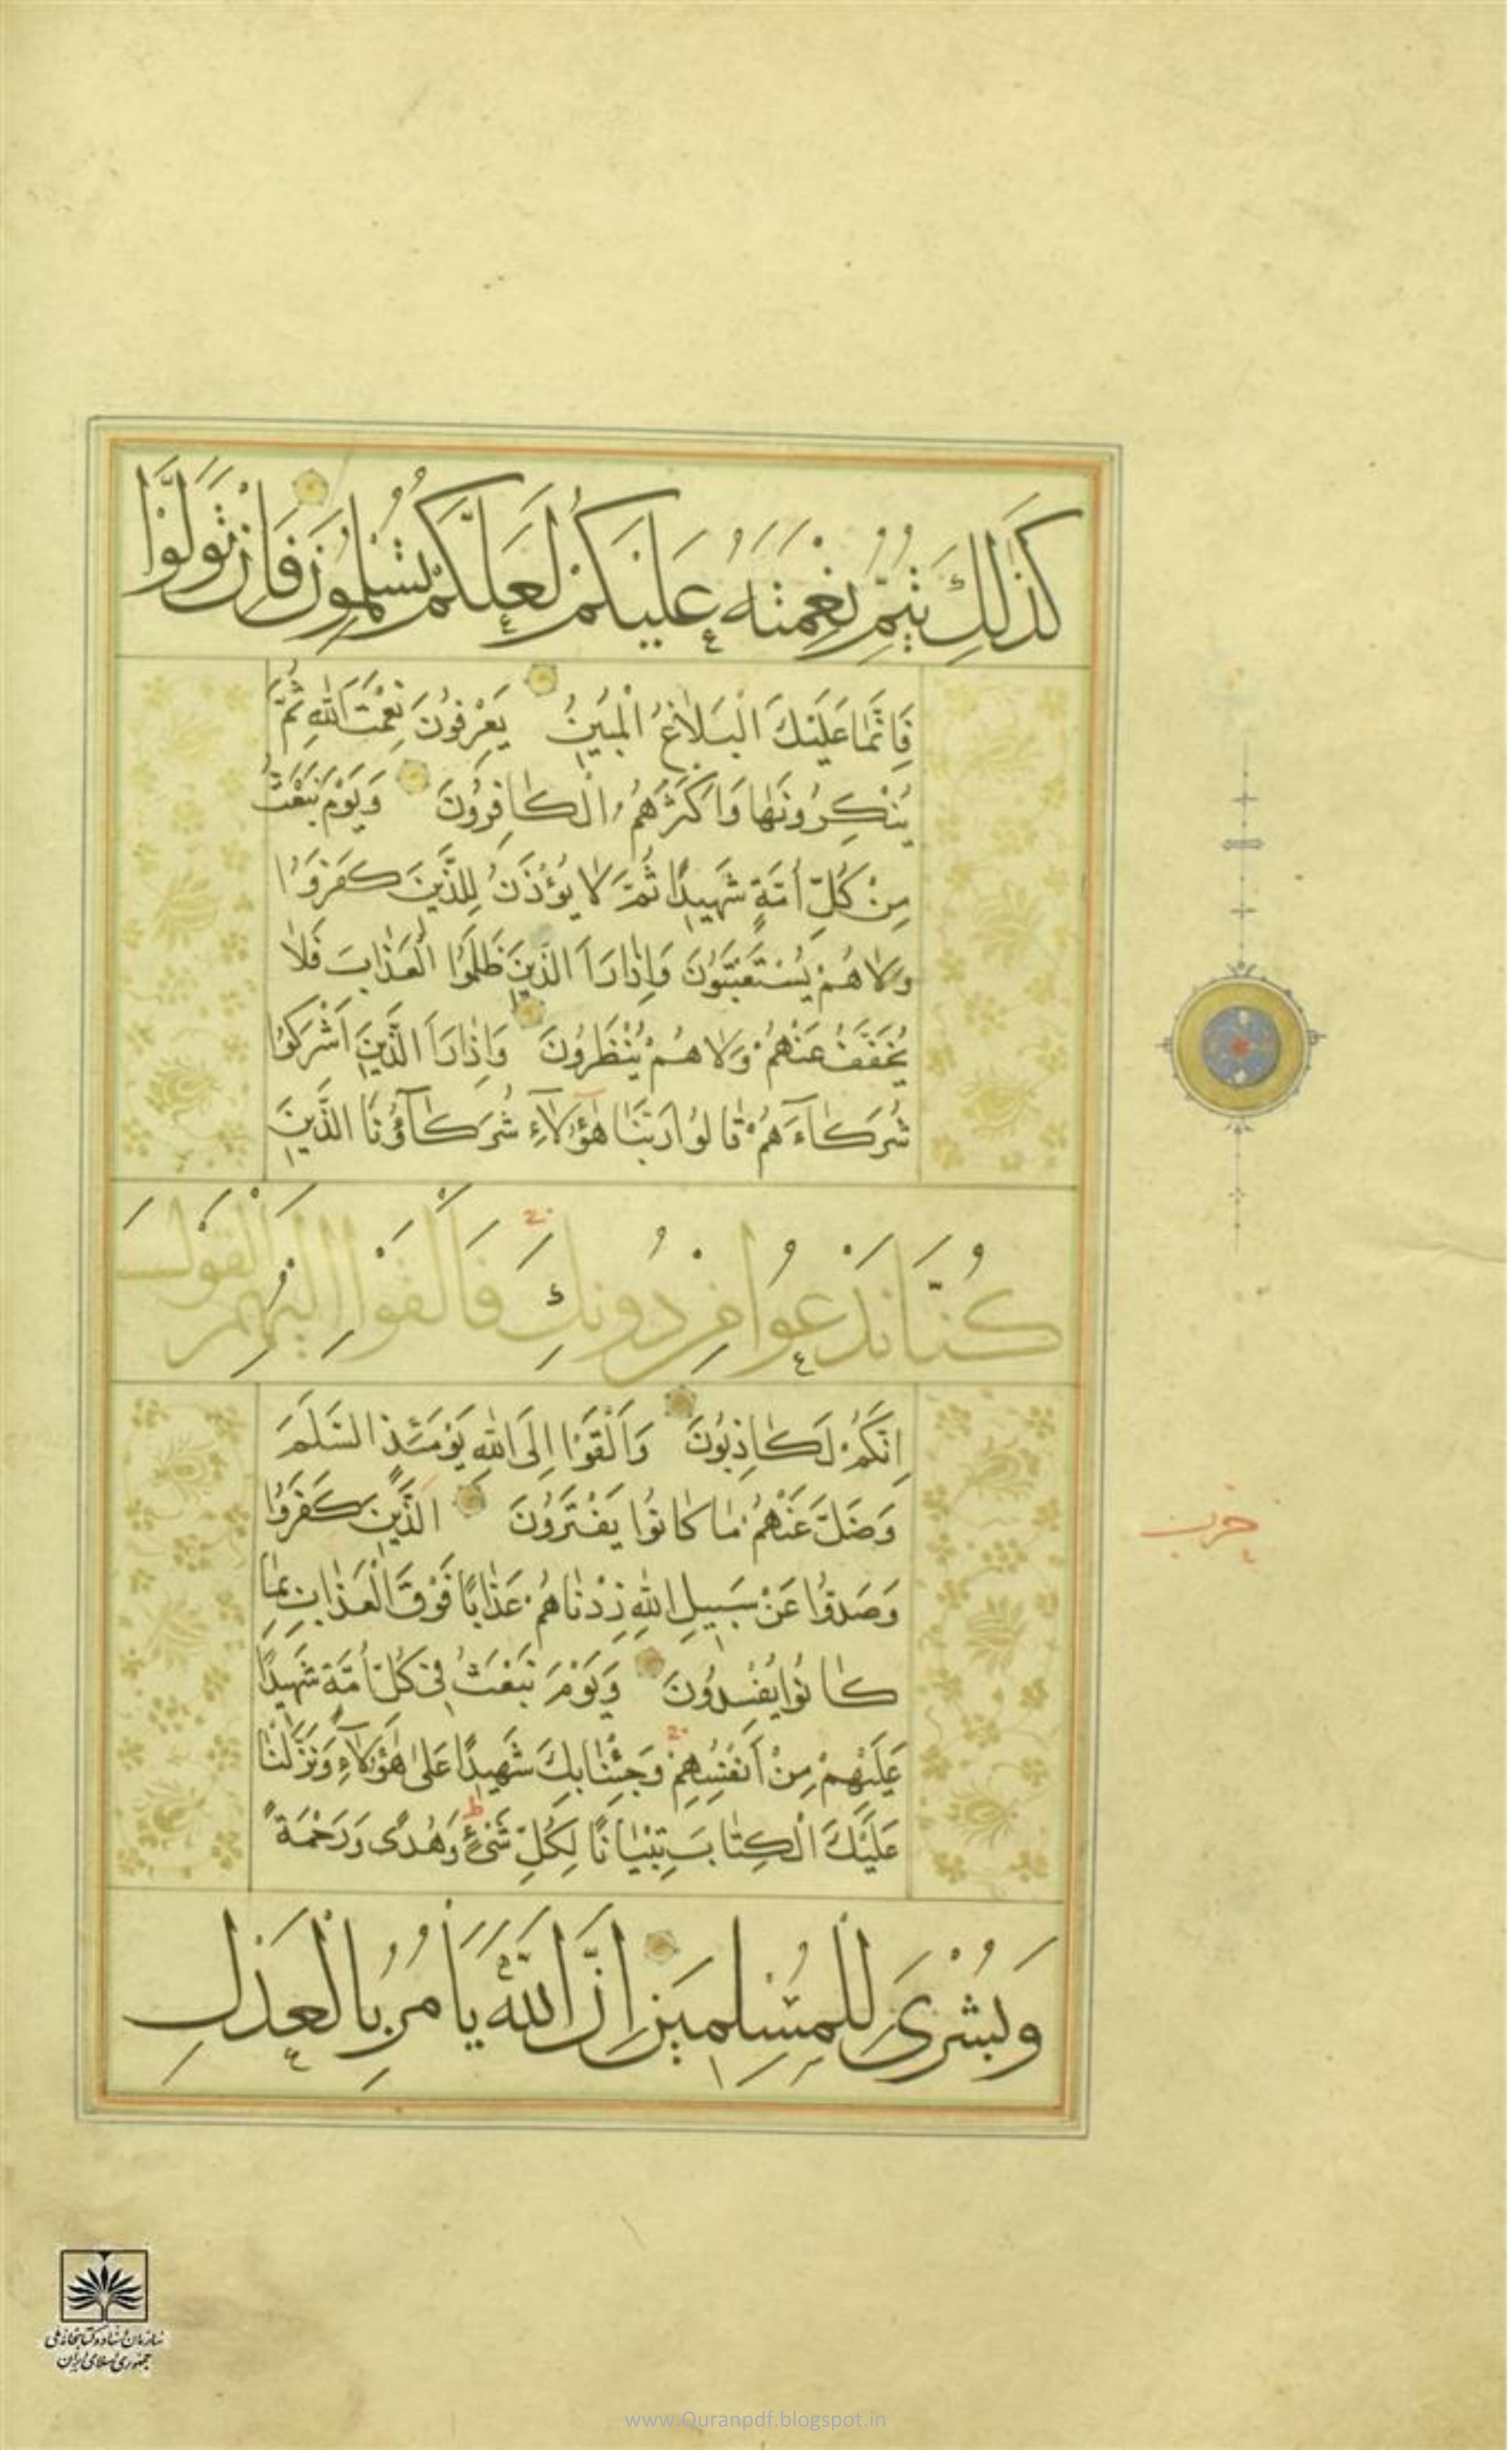 كَذَٰلِكَ يُتِمُّ نِعْمَتَهُ عَلَيْكُمْ لَعَلَّكُمْ تُسْلِمُونَ فَإِنْ تَوَلَّوْا
فَاِنَّمَا عَلَيْكَ الْبَلَاغُ الْمُبِينُ يَعْرِفُونَ نِعْمَتَ اللّٰهِ ثُمَّ
يُنْكِرُونَهَا وَاَكْثَرُهُمُ الْكَافِرُونَ وَيَوْمَ نَبْعَثُ
مِنْ كُلِّ أُمَّةٍ شَهِيدًا ثُمَّ لَا يُؤْذَنُ لِلَّذِينَ كَفَرُوا
وَلَا هُمْ يُسْتَعْتَبُونَ وَاِذَا رَاَ الَّذِينَ ظَلَمُوا الْعَذَابَ فَلَا
يُخَفَّفُ عَنْهُمْ وَلَا هُمْ يُنْظَرُونَ وَاِذَا رَاَ الَّذِينَ اَشْرَكُوا
شُرَكَاءَهُمْ قَالُوا رَبَّنَا هٰؤُلَاءِ شُرَكَآؤُنَا الَّذِينَ
كُنَّا نَدْعُوا مِنْ دُونِكَ فَاَلْقَوْا اِلَيْهِمُ الْقَوْلَ
اِنَّكُمْ لَكَاذِبُونَ وَاَلْقَوْا اِلَى اللّٰهِ يَوْمَئِذٍ السَّلَمَ
وَضَلَّ عَنْهُمْ مَا كَانُوا يَفْتَرُونَ الَّذِينَ كَفَرُوا
وَصَدُّوا عَنْ سَبِيلِ اللّٰهِ زِدْنَاهُمْ عَذَابًا فَوْقَ الْعَذَابِ بِمَا
كَانُوا يُفْسِدُونَ وَيَوْمَ نَبْعَثُ فِى كُلِّ اُمَّةٍ شَهِيدًا
عَلَيْهِمْ مِنْ اَنْفُسِهِمْ وَجِئْنَا بِكَ شَهِيدًا عَلىٰ هٰؤُلَاءِ وَنَزَّلْنَا
عَلَيْكَ الْكِتَابَ تِبْيَانًا لِكُلِّ شَىْءٍ وَهُدًى وَرَحْمَةً
وَبُشْرَىٰ لِلْمُسْلِمِينَ اِنَّ اللّٰهَ يَأْمُرُ بِالْعَدْلِ
حزب
سازمان اسناد و کتابخانه ملی
جمهوری اسلامی ایران
www.Quranpdf.blogspot.in